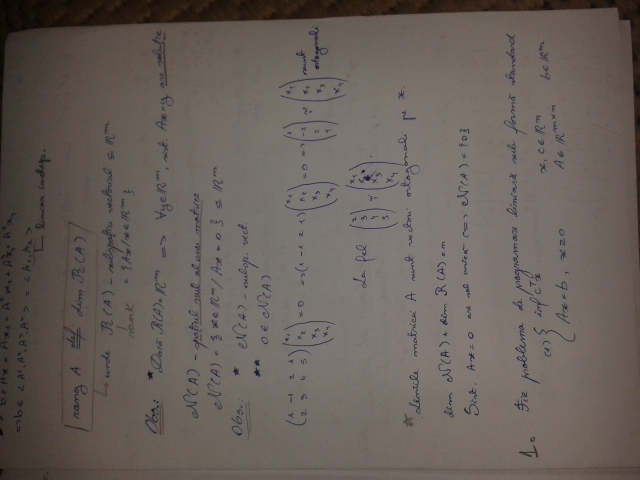 => b = Ax = A¹x₁ + A²x₂ + A³x₃ + A⁴x₄
=> b ∈ <A¹, A², A³, A⁴> = <A¹, A²>
liniar indep.
rang A def dim R(A)
unde R(A) - subspațiu vectorial ⊆ R^m
= {Ax / x ∈ R^n}
Obs: * Dacă R(A) = R^m => ∀y ∈ R^m, sist. Ax = y are soluție
N(A) - spațiul nul al unei matrice
N(A) = {x ∈ R^n / Ax = 0} ⊆ R^n
Obs: * N(A) - subsp. vect.
** 0 ∈ N(A)
(1 -1 2 1 / 2 3 4 5) (x₁ x₂ x₃ x₄) = 0 => (1 -1 2 1) (x₁ x₂ x₃ x₄) = 0 => (1 -1 2 1) și (x₁ x₂ x₃ x₄) sunt ortogonali
La fel (2 3 4 5) și (x₁ x₂ x₃ x₄).
* Liniile matricii A sunt vectori ortogonali pe x.
dim N(A) + dim R(A) = n
Sist. Ax = 0 are sol unică <=> N(A) = {0}
1. Fie problema de programare liniară sub formă standard
(1) { inf cᵀx
Ax = b, x ≥ 0
x, c ∈ R^n
A ∈ R^{m×n} b ∈ R^m